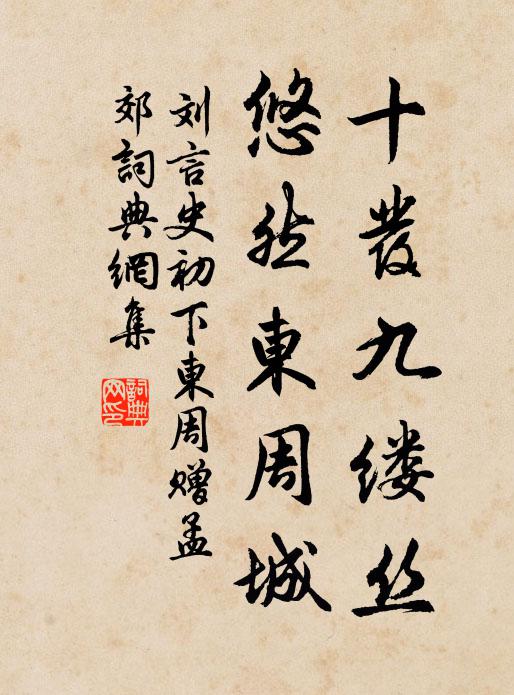 十發九缕丝
悠然東周城
刘言史初下東周赠孟
郊詞典網集
詞典
网印